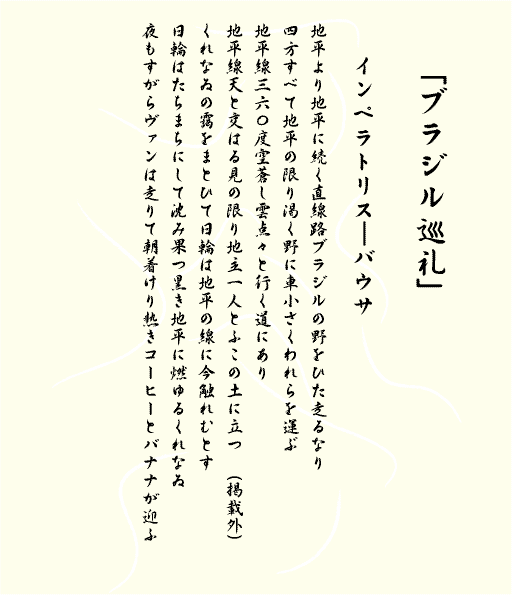 「ブラジル巡礼」
インペラトリス―バウサ
地平より地平に続く直線路ブラジルの野をひた走るなり
四方すべて地平の限り渇く野に車小さくわれらを運ぶ
地平線三六〇度空蒼し雲点々と行く道にあり
地平線天と交はる見の限り地主一人とふこの土に立つ （掲載外）
くれなゐの靄をまとひて日輪は地平の線に今触れむとす
日輪はたちまちにして沈み果つ黒き地平に燃ゆるくれなゐ
夜もすがらヴァンは走りて朝着けり熱きコーヒーとバナナが迎ふ